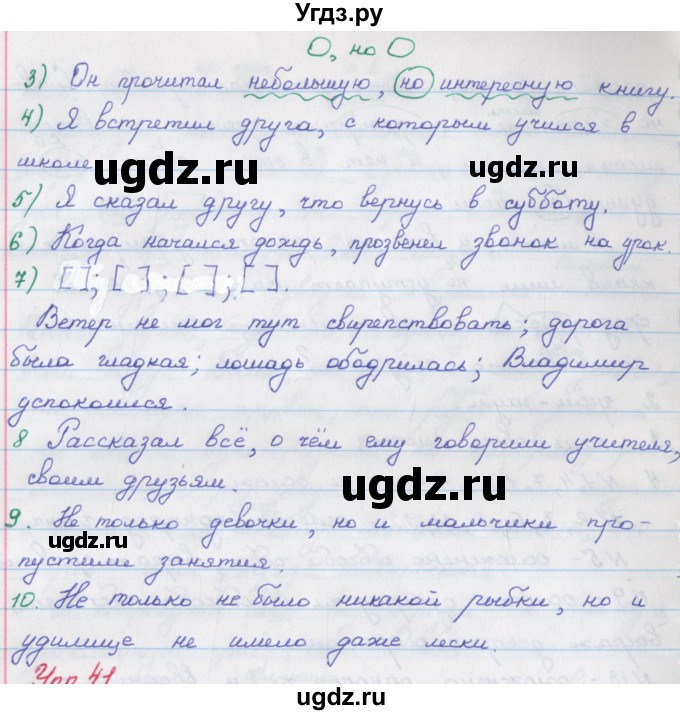 Угдз.ру
О, но О
3) Он прочитал небольшую, но интересную книгу.
4) Я встретил друга, с которым учился в
школе
ugdz.ru ugdz.ru
5) Я сказал другу, что вернусь в субботу.
6) Когда начался дождь, прозвенел звонок на урок.
7) [ ]; [ ]; [ ]; [ ].
Ветер не мог тут свирепствовать; дорога
была гладкая; лошадь ободрилась; Владимир
успокоился.
8 Рассказал всё, о чём ему говорили учителя,
своим друзьям.
ugdz.ru
9. Не только девочки, но и мальчики про-
ugdz.ru
пустили занятия.
10. Не только не было никакой рыбки, но и
удилище не имело даже лески.
ugdz.ru
Упр 41
ugdz.ru